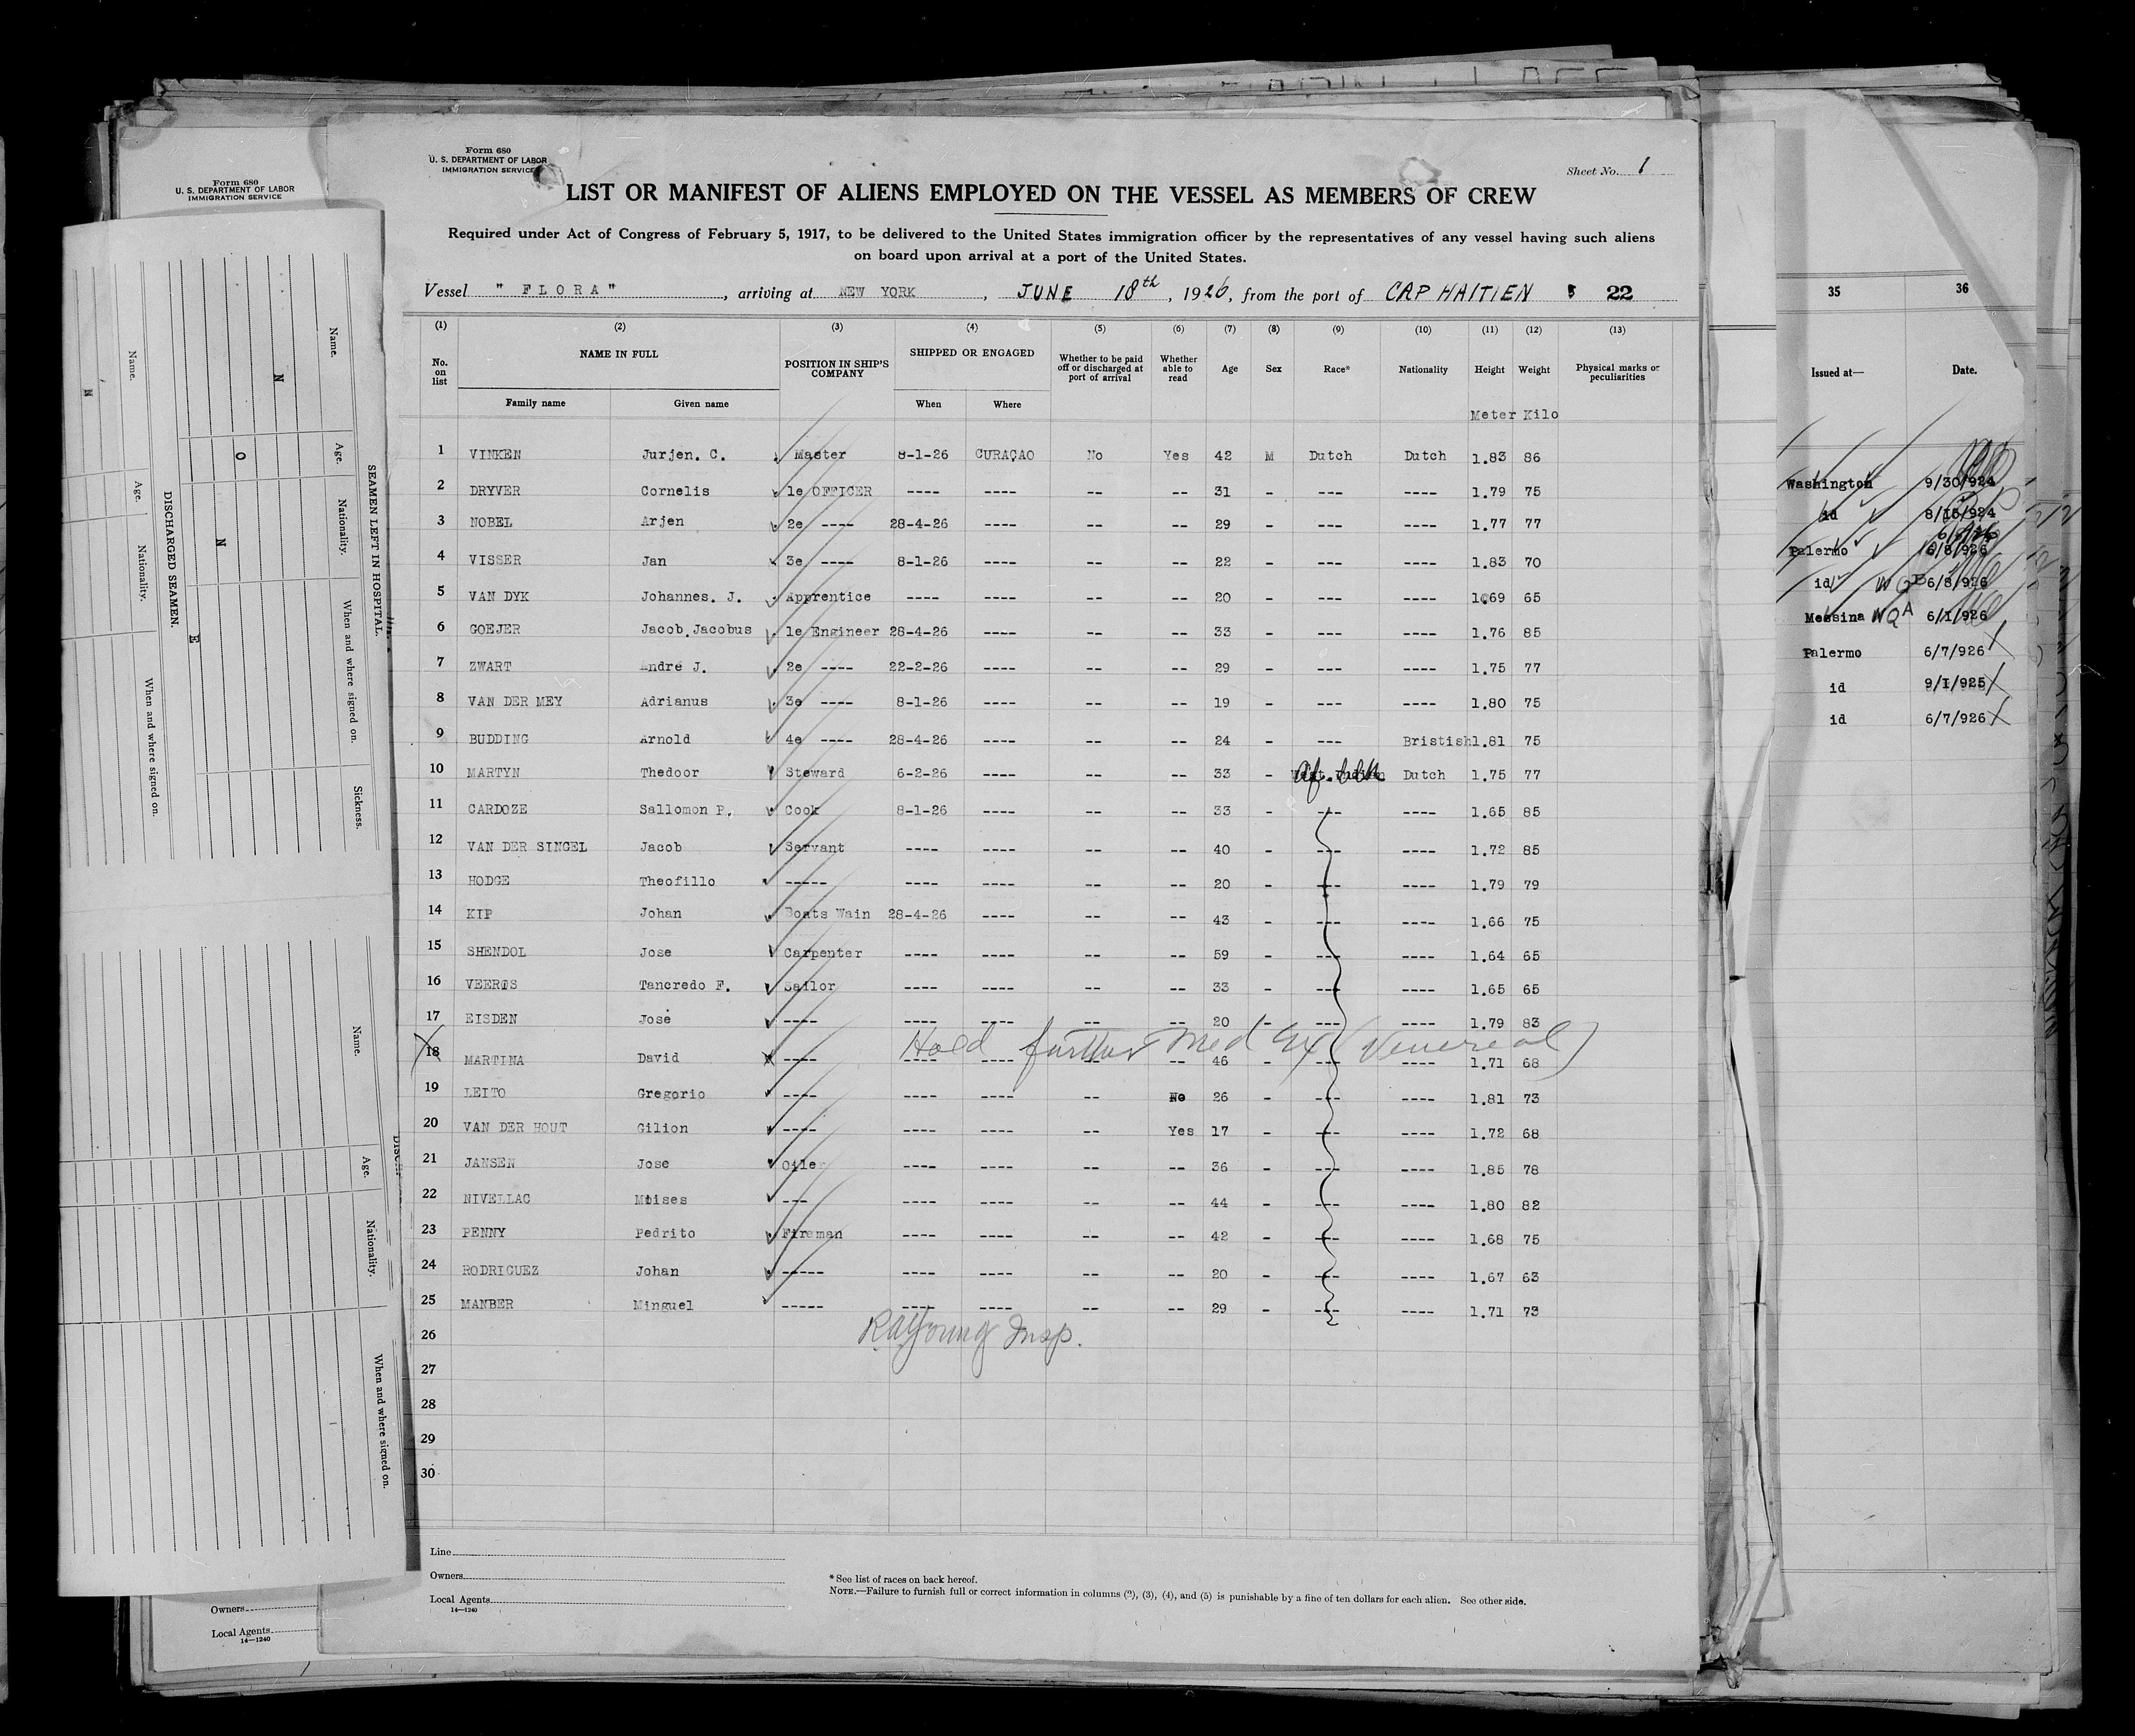 Form 680
U. S. DEPARTMENT OF LABOR
IMMIGRATION SERVICE
Sheet No. 1
LIST OR MANIFEST OF ALIENS EMPLOYED ON THE VESSEL AS MEMBERS OF CREW
Required under Act of Congress of February 5, 1917, to be delivered to the United States immigration officer by the representatives of any vessel having such aliens
on board upon arrival at a port of the United States.
Vessel " FLORA ", arriving at NEW YORK, JUNE 18th, 1926, from the port of CAP HAITIEN 22
(1) (2) (3) (4) (5) (6) (7) (8) (9) (10) (11) (12) (13)
No. on list NAME IN FULL POSITION IN SHIP'S COMPANY SHIPPED OR ENGAGED Whether to be paid off or discharged at port of arrival Whether able to read Age Sex Race* Nationality Height Weight Physical marks or peculiarities
Family name Given name When Where
Meter Kilo
1 VINKEN Jurjen. C. Master 8-1-26 CURAÇAO No Yes 42 M Dutch Dutch 1.83 86
2 DRYVER Cornelis 1e OFFICER ---- ---- -- -- 31 - --- ---- 1.79 75
3 NOBEL Arjen 2e ---- 28-4-26 ---- -- -- 29 - --- ---- 1.77 77
4 VISSER Jan 3e ---- 8-1-26 ---- -- -- 22 - --- ---- 1.83 70
5 VAN DYK Johannes. J. Apprentice ---- ---- -- -- 20 - --- ---- 1.69 65
6 GOEJER Jacob.Jacobus 1e Engineer 28-4-26 ---- -- -- 33 - --- ---- 1.76 85
7 ZWART Andre J. 2e ---- 22-2-26 ---- -- -- 29 - --- ---- 1.75 77
8 VAN DER MEY Adrianus 3e ---- 8-1-26 ---- -- -- 19 - --- ---- 1.80 75
9 BUDDING Arnold 4e ---- 28-4-26 ---- -- -- 24 - --- Bristish 1.81 75
10 MARTYN Thedoor Steward 6-2-26 ---- -- -- 33 - Af. blk Dutch 1.75 77
11 CARDOZE Sallomon P. Cook 8-1-26 ---- -- -- 33 - --- ---- 1.65 85
12 VAN DER SINGEL Jacob Servant ---- ---- -- -- 40 - --- ---- 1.72 85
13 HODGE Theofillo ----- ---- ---- -- -- 20 - --- ---- 1.79 79
14 KIP Johan Boats Wain 28-4-26 ---- -- -- 43 - --- ---- 1.66 75
15 SHENDOL Jose Carpenter ---- ---- -- -- 59 - --- ---- 1.64 65
16 VEEROS Tancredo F. Sailor ---- ---- -- -- 33 - --- ---- 1.65 65
17 EISDEN José ---- ---- ---- -- -- 20 - --- ---- 1.79 83
Hold further Med Ex (Venereal)
18 MARTINA David ---- ---- ---- -- -- 46 - --- ---- 1.71 68
19 LEITO Gregorio ---- ---- ---- -- No 26 - --- ---- 1.81 73
20 VAN DER HOUT Gilion ---- ---- ---- -- Yes 17 - --- ---- 1.72 68
21 JANSEN Jose Oiler ---- ---- -- -- 36 - --- ---- 1.85 78
22 NIVELLAC Moises --- ---- ---- -- -- 44 - --- ---- 1.80 82
23 PENNY Pedrito Fireman ---- ---- -- -- 42 - --- ---- 1.68 75
24 RODRIGUEZ Johan ----- ---- ---- -- -- 20 - --- ---- 1.67 63
25 MANBER Minguel ----- ---- ---- -- -- 29 - --- ---- 1.71 73
26 RAYoung Insp.
27
28
29
30
Line
Owners
Local Agents
14—1240
* See list of races on back hereof.
NOTE.—Failure to furnish full or correct information in columns (2), (3), (4), and (5) is punishable by a fine of ten dollars for each alien. See other side.
Form 680
U. S. DEPARTMENT OF LABOR
IMMIGRATION SERVICE
SEAMEN LEFT IN HOSPITAL.
Name. Age. Nationality. When and where signed on. Sickness.
N O N E
DISCHARGED SEAMEN.
Name. Age. Nationality. When and where signed on.
N
Name. Age. Nationality. When and where signed on.
Owners
Local Agents
14—1240
35 36
Issued at— Date.
Washington 9/30/924
id 8/15/924
Palermo 6/8/926
id 6/8/926
Messina 6/1/926
Palermo 6/7/926
id 9/1/925
id 6/7/926